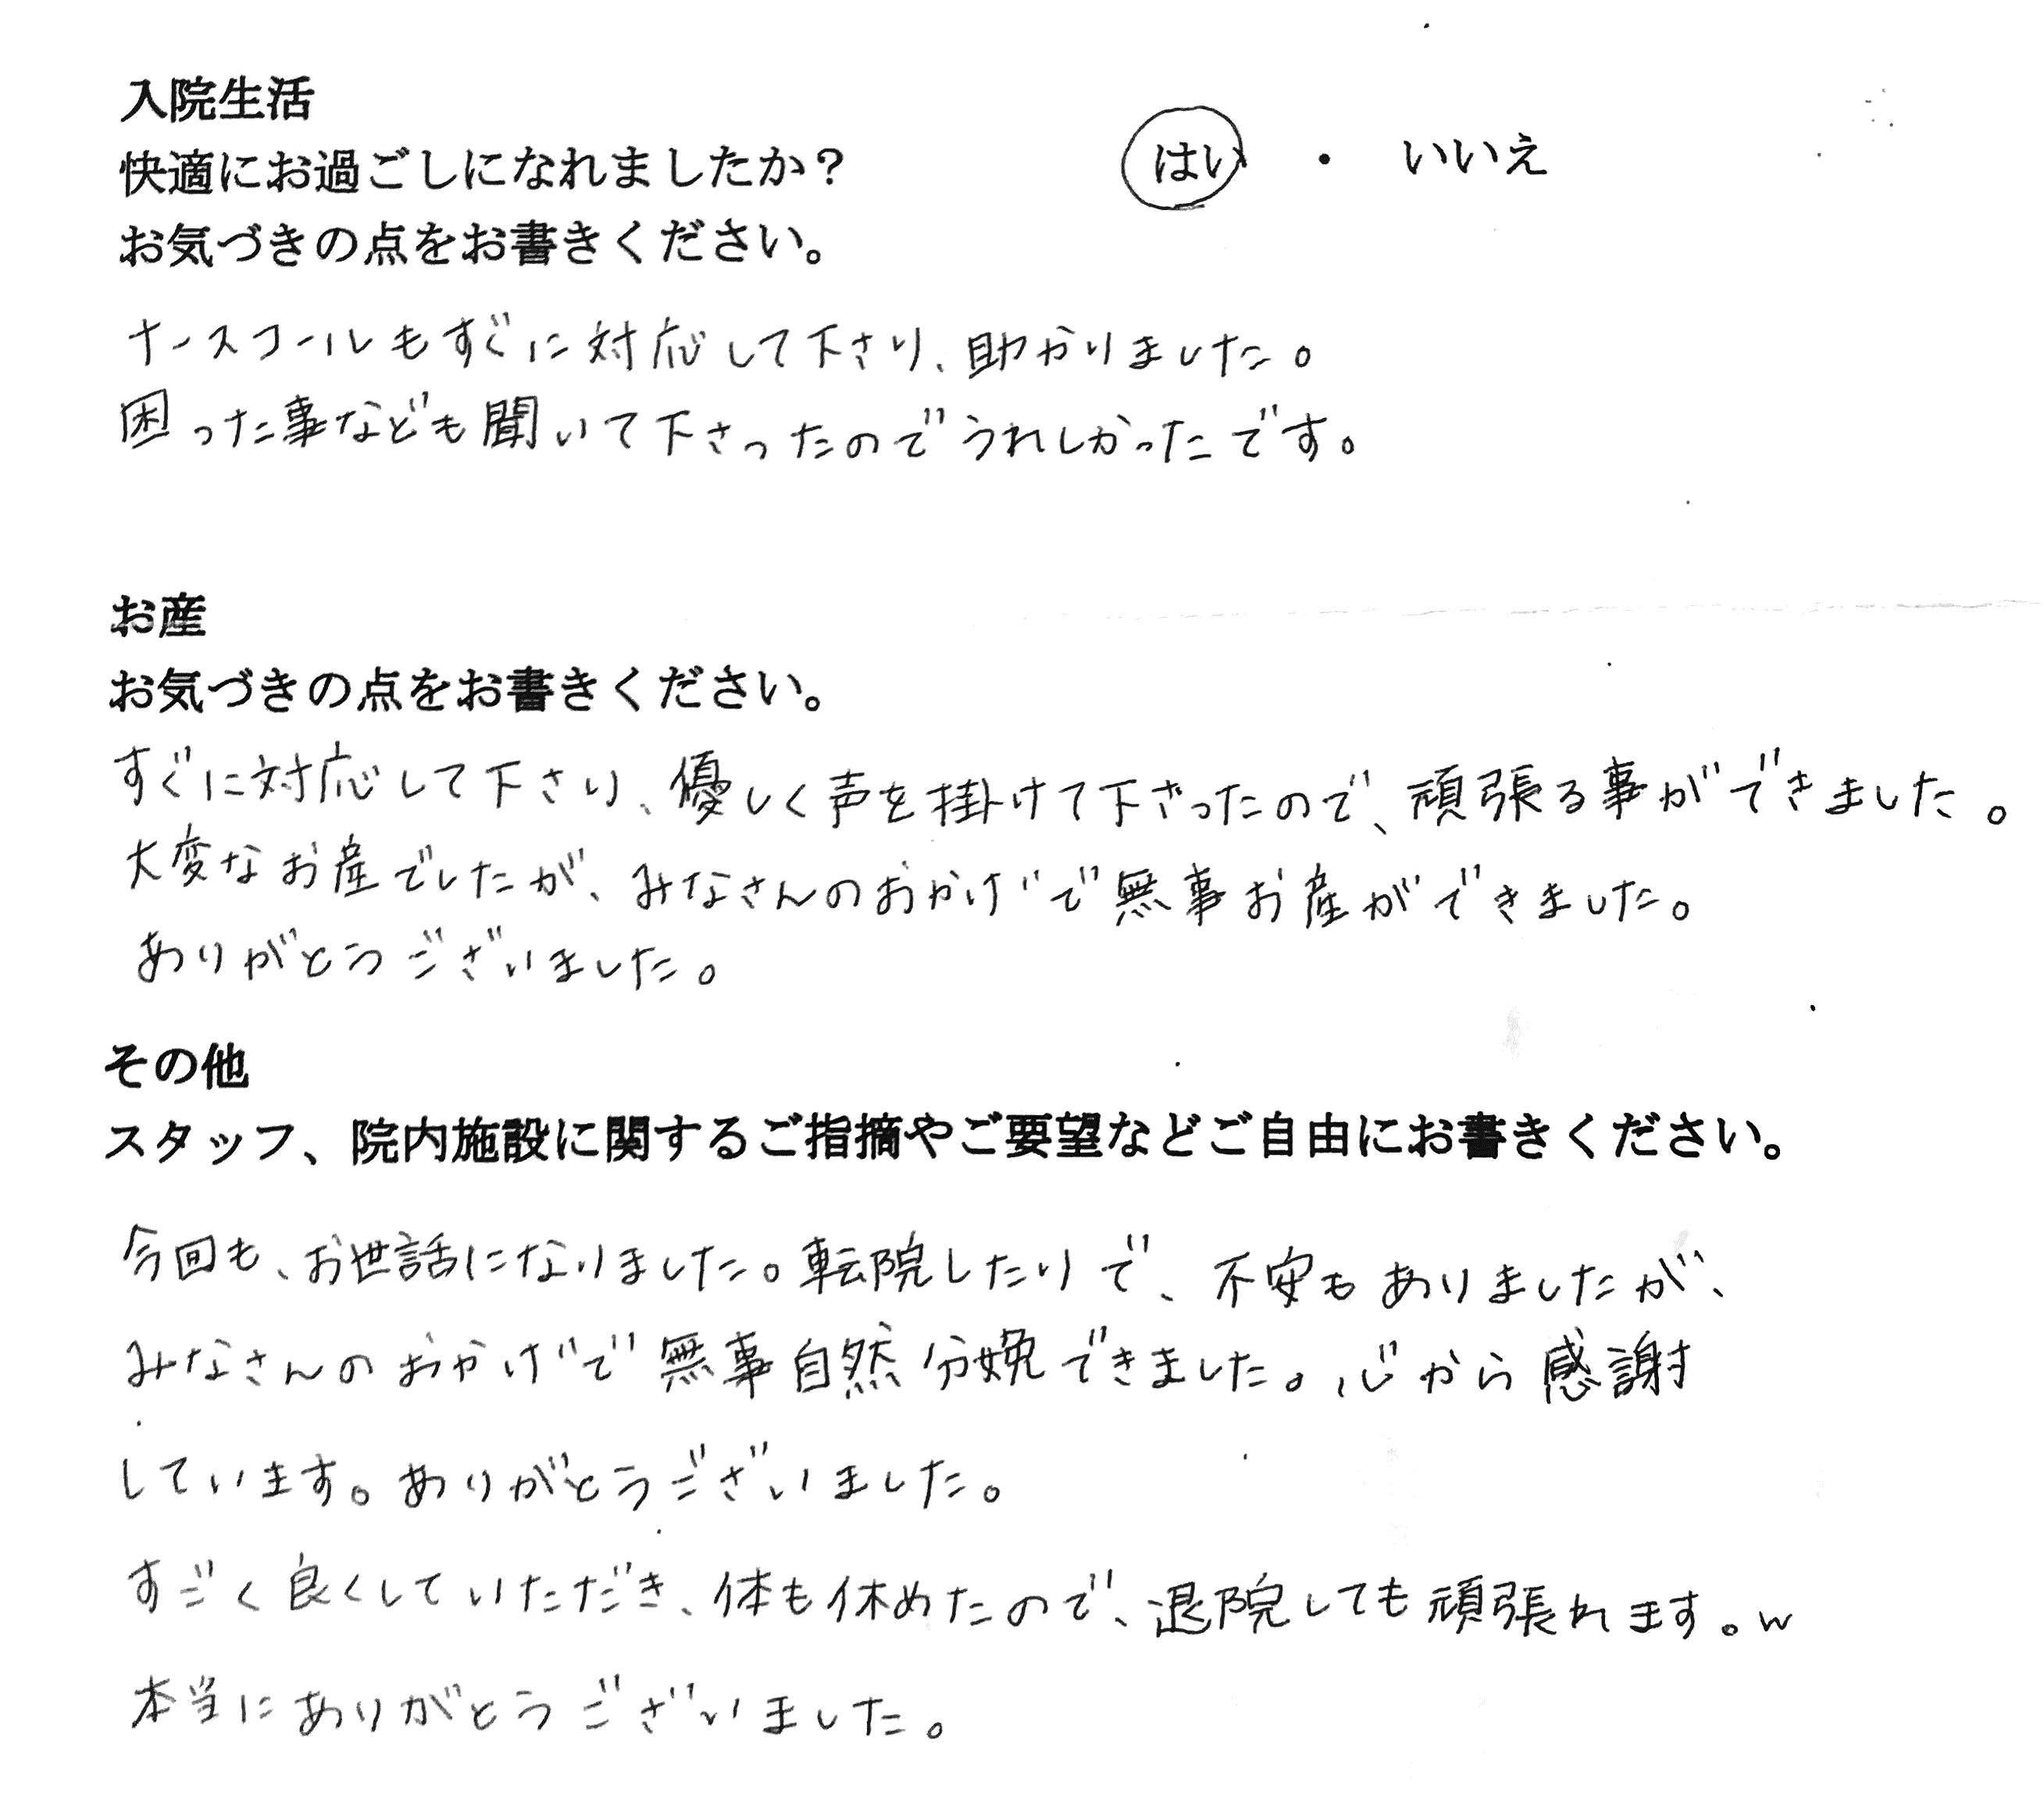 入院生活
快適にお過ごしになれましたか？ はい ・ いいえ
お気づきの点をお書きください。
ナースコールもすぐに対応して下さり、助かりました。
困った事なども聞いて下さったのでうれしかったです。
お産
お気づきの点をお書きください。
すぐに対応して下さり、優しく声を掛けて下さったので、頑張る事ができました。
大変なお産でしたが、みなさんのおかげで無事お産ができました。
ありがとうございました。
その他
スタッフ、院内施設に関するご指摘やご要望などご自由にお書きください。
今回も、お世話になりました。転院したりで、不安もありましたが、
みなさんのおかげで無事自然分娩できました。心から感謝
しています。ありがとうございました。
すごく良くしていただき、体も休めたので、退院しても頑張れます。w
本当にありがとうございました。